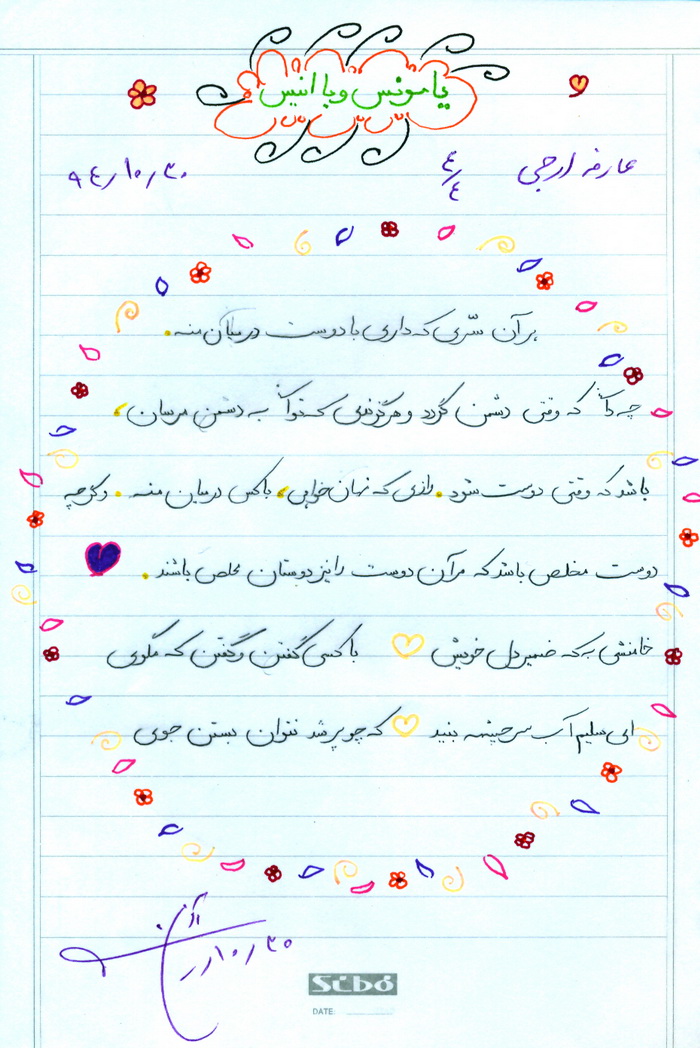 یا مونس و یا انیس
عارفه ارجی ۴/۴ ۹۴/۱۰/۳۰
هر آن سّری که داری با دوست در میان منه.
چه دانی که وقتی دشمن گردد و هر گزندی که توانی به دشمن مرسان،
باشد که وقتی دوست شود. رازی که نهان خواهی، با کس در میان منه. وگرچه
دوست مخلص باشد که مر آن دوست را نیز دوستان مخلص باشند.
خامشی به که ضمیر دل خویش با کسی گفتن و گفتن که مگوی
ای سلیم آب سرچشمه ببند که چو پر شد نتوان بستن جوی
۱۰/۳۰
Sibo
DATE: